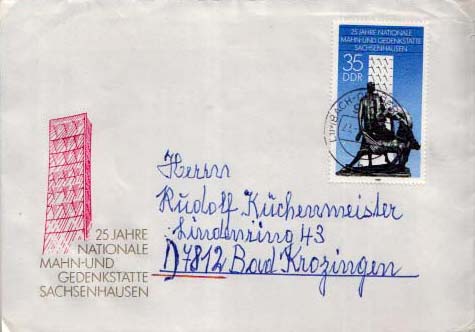 25 JAHRE NATIONALE
MAHN-UND GEDENKSTÄTTE
SACHSENHAUSEN
35
DDR
Herrn
Rudolf Küchenmeister
Lindenring 43
D7812 Bad Krozingen
25 JAHRE
NATIONALE
MAHN-UND
GEDENKSTÄTTE
SACHSENHAUSEN